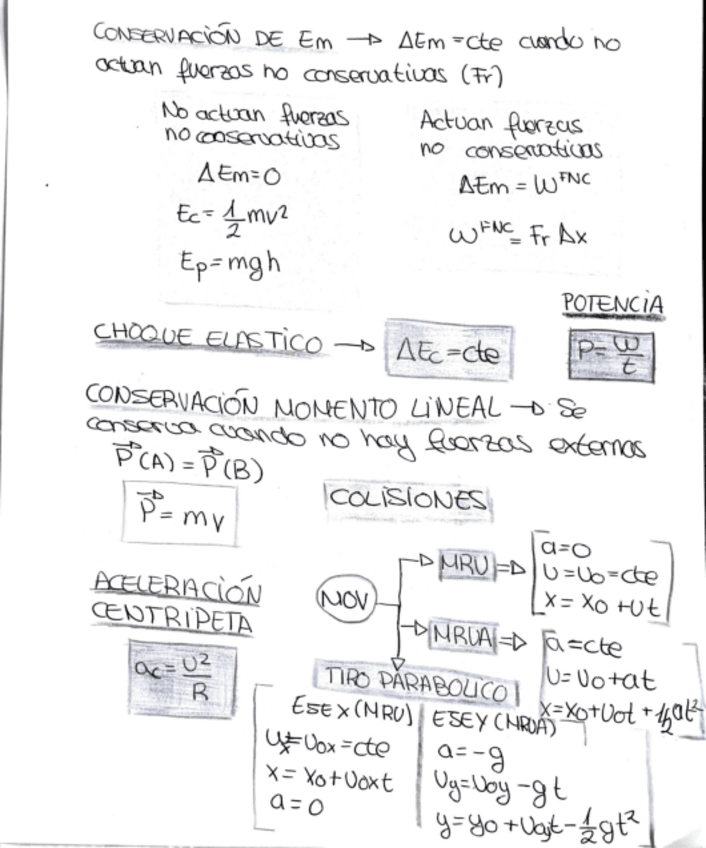 CONSERVACIÓN DE Em → ΔEm = cte cuando no
actuan fuerzas no conservativas (Fr)
No actuan fuerzas
no conservativas
ΔEm=0
Ec = 1/2 mv²
Ep = mgh
Actuan fuerzas
no conservativas
ΔEm = W^FNC
W^FNC = Fr Δx
POTENCIA
P = W/t
CHOQUE ELASTICO → ΔEc = cte
CONSERVACIÓN MOMENTO LINEAL → Se
conserva cuando no hay fuerzas externas
P⃗(A) = P⃗(B)
P⃗ = mv
COLISIONES
ACELERACIÓN
CENTRIPETA
ac = v²/R
MOV
MRU ⇒
a=0
v=v₀=cte
x = x₀ + vt
MRUA ⇒
a=cte
v=v₀+at
x=x₀+v₀t + 1/2at²
TIRO PARABOLICO
ESE X (MRU)
vx=v₀x=cte
x = x₀+v₀xt
a=0
ESE Y (MRUA)
a=-g
vy=v₀y-gt
y=y₀+v₀yt-1/2gt²